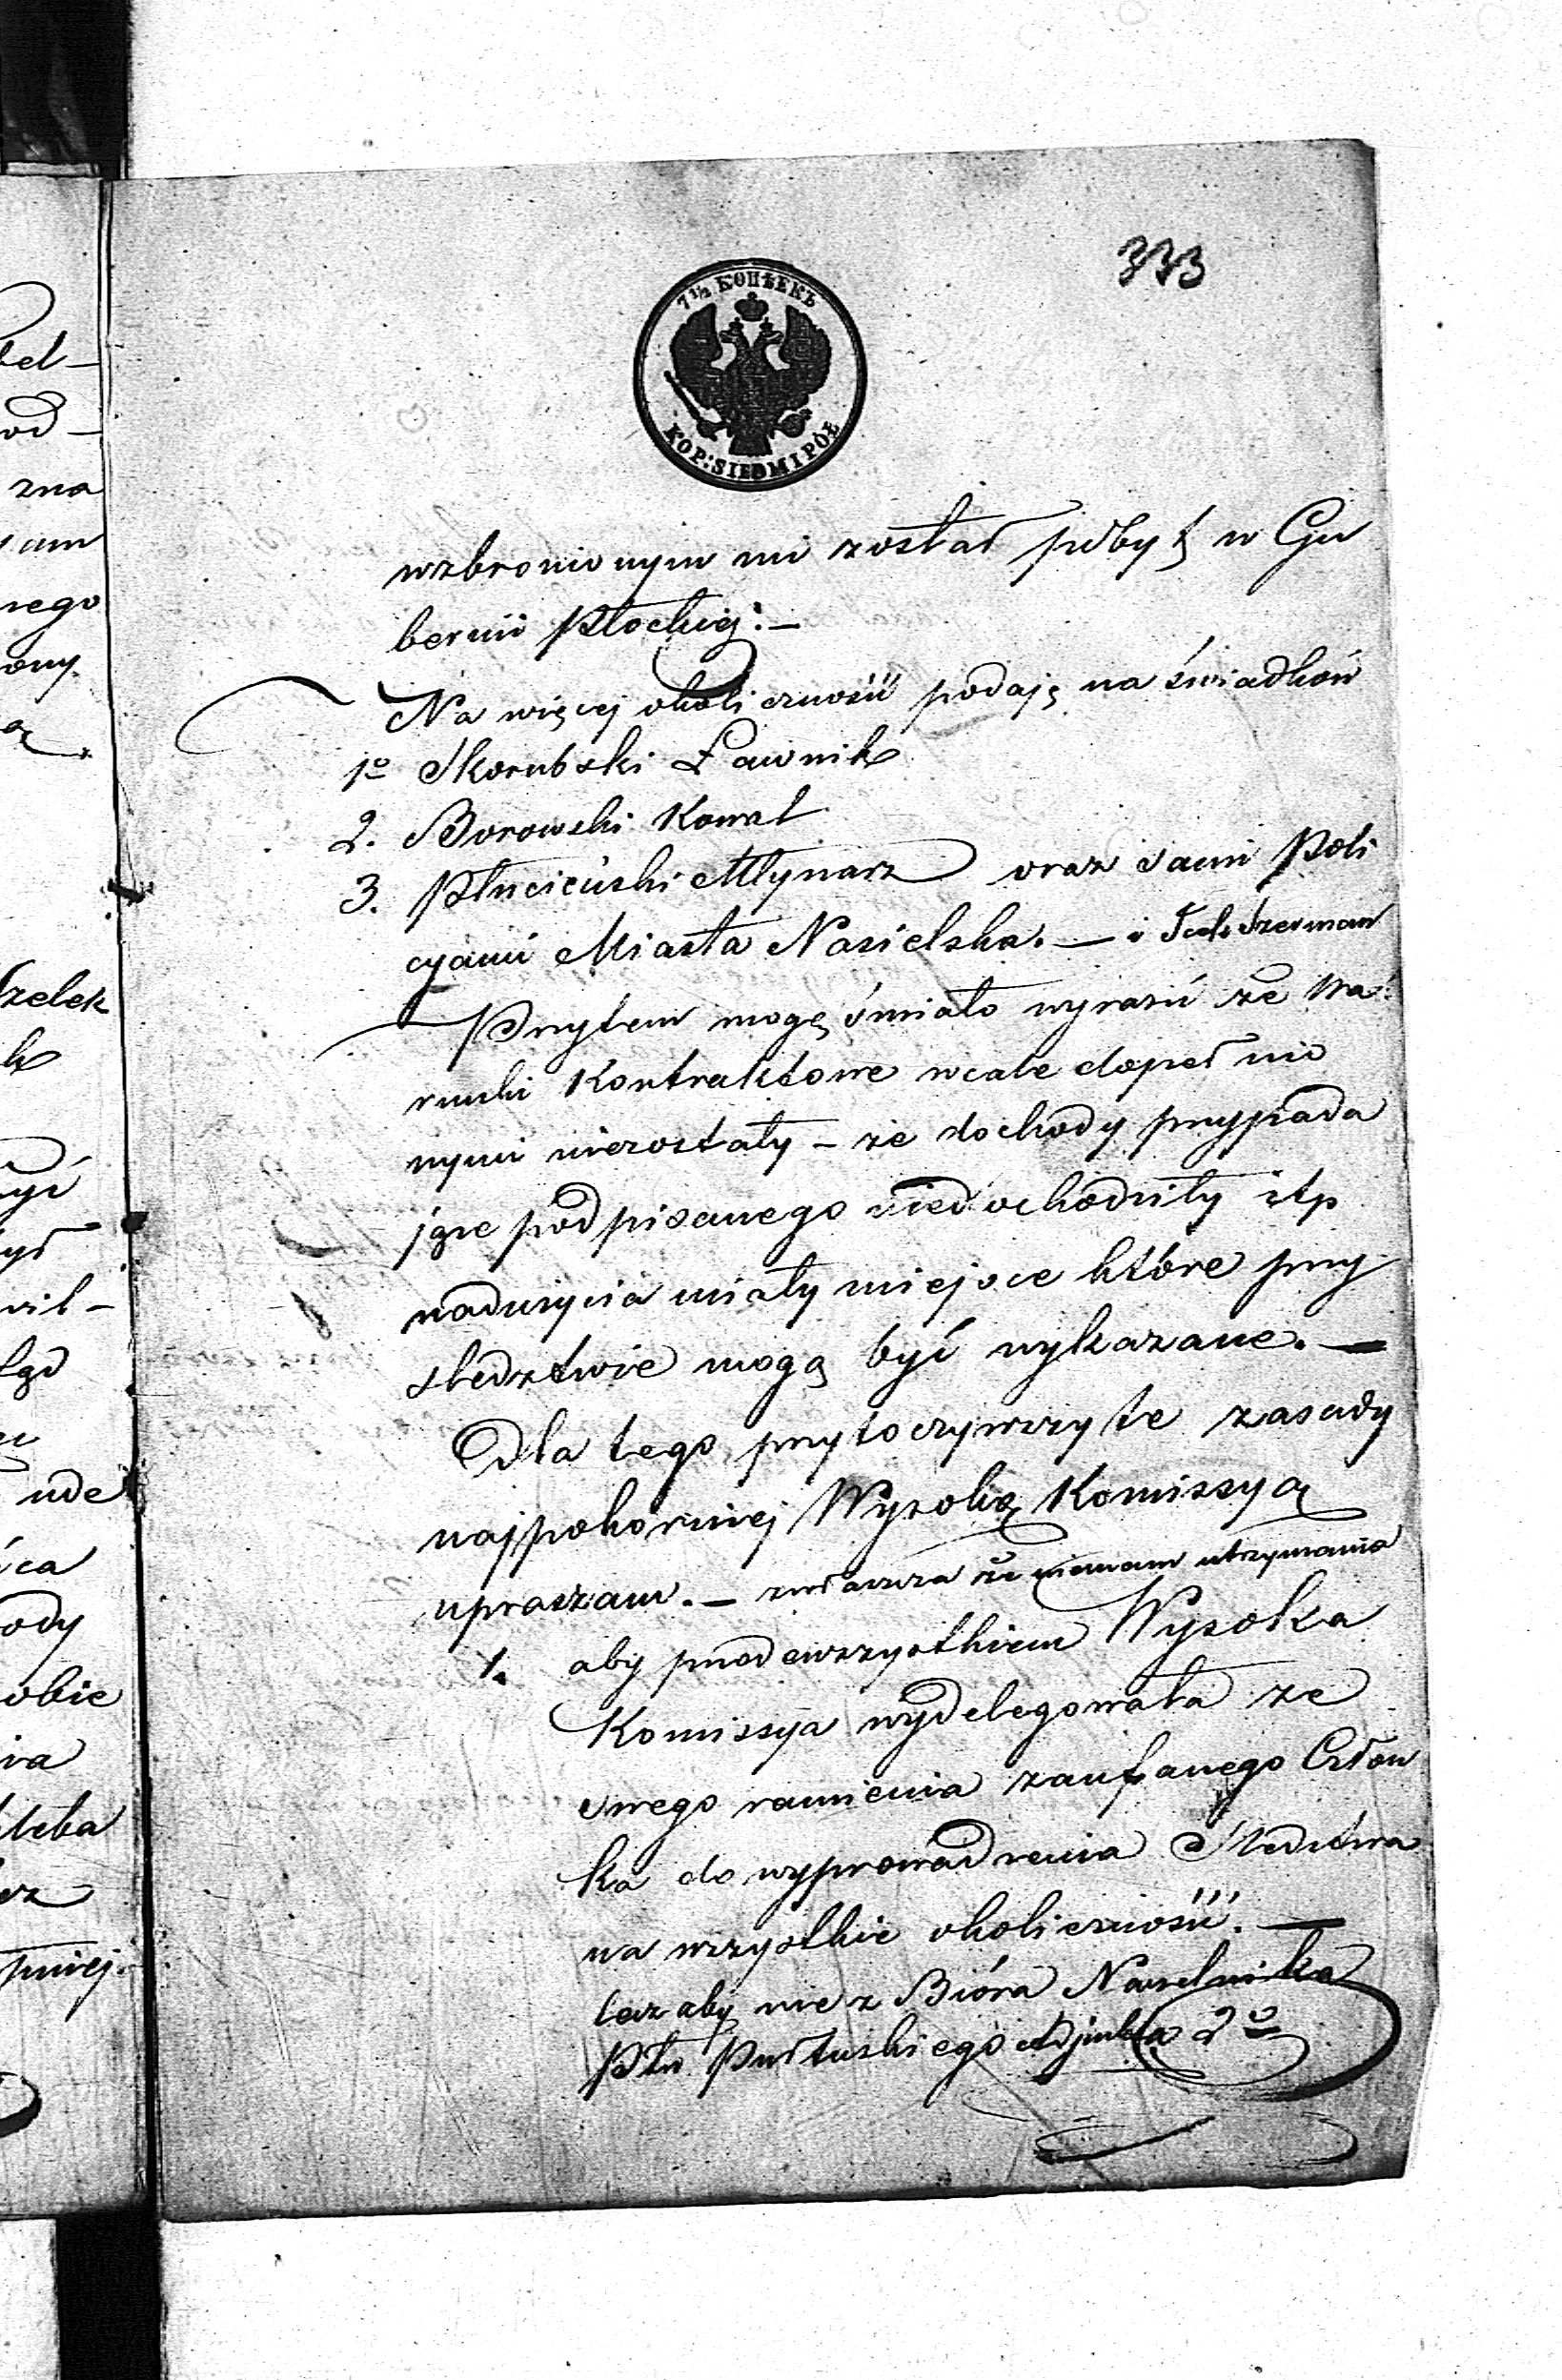 333
7½ КОПѢЕКЪ
KOP: SIEDM I PÓŁ
wzbronionym mi został pobyt w Gu
bernii Płockiéj:—
Na więcéj okoliczności podaję na świadków
1o Skorubski Ławnik
2. Borowski Kowal
3. Płuciński Młynarz oraz sami Poli
cyanci Miasta Nasielska. — i Szerman
Przytem mogę śmiało wyrazić że Wa:
runki Kontraktowe wcale dopeł nio
nymi niezostały – że dochody przypada
jące podpisanego niedochodziły itp
nadużycia miały miejsce które przy
śledztwie mogą być wykazane. —
Dla tego przytoczywszy te zasady
najpokorniej Wysoką Komissyą
upraszam. — zwłaszcza że niemam utrzymania
1. aby przedewszystkiem Wysoka
Komissya wydelegowała ze
swego ramienia zaufanego Człon
ka do wyprowadzenia Śledztwa
na wszystkie okoliczności. —
lecz aby nie z Bióra Naczelnika
Ptu Pułtuskiego Adjunkta 2o
bel—
od—
zna
am
nego
ony.
zelek
yć
ył
wil—
ude
ca
ody
obie
ia
teba
pniej.